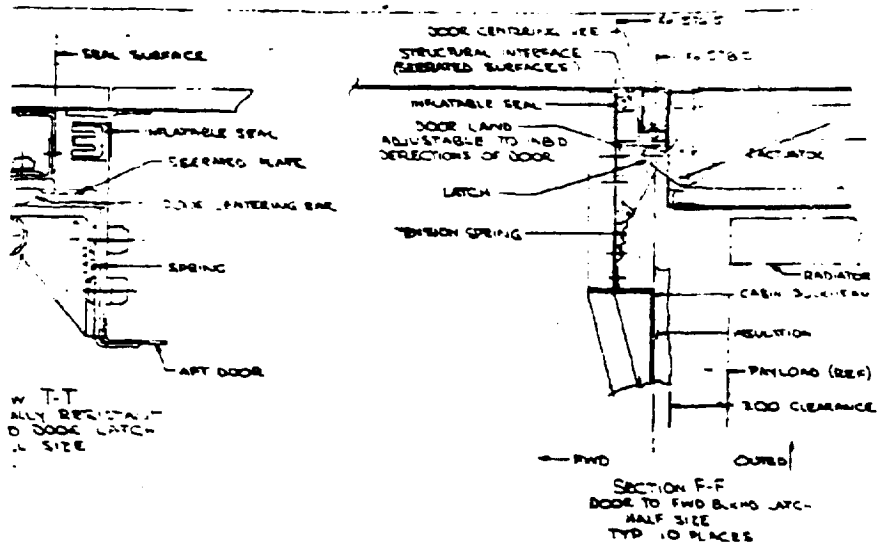 SEAL SURFACE
INFLATABLE SEAL
SERRATED PLATE
CENTERING BAR
SPRING
AFT DOOR
T-T
DOOR LATCH
SIZE
DOOR CENTERING VEE
STRUCTURAL INTERFACE
(SERRATED SURFACES)
INFLATABLE SEAL
DOOR LAND
ADJUSTABLE TO INBD
DERECTIONS OF DOOR
LATCH
TENSION SPRING
ACTUATOR
RADIATOR
CABIN BULKHEAD
INSULATION
PAYLOAD (REF)
CLEARANCE
FWD
OUTBD
SECTION F-F
DOOR TO FWD BLKHD LATCH
HALF SIZE
TYP 10 PLACES